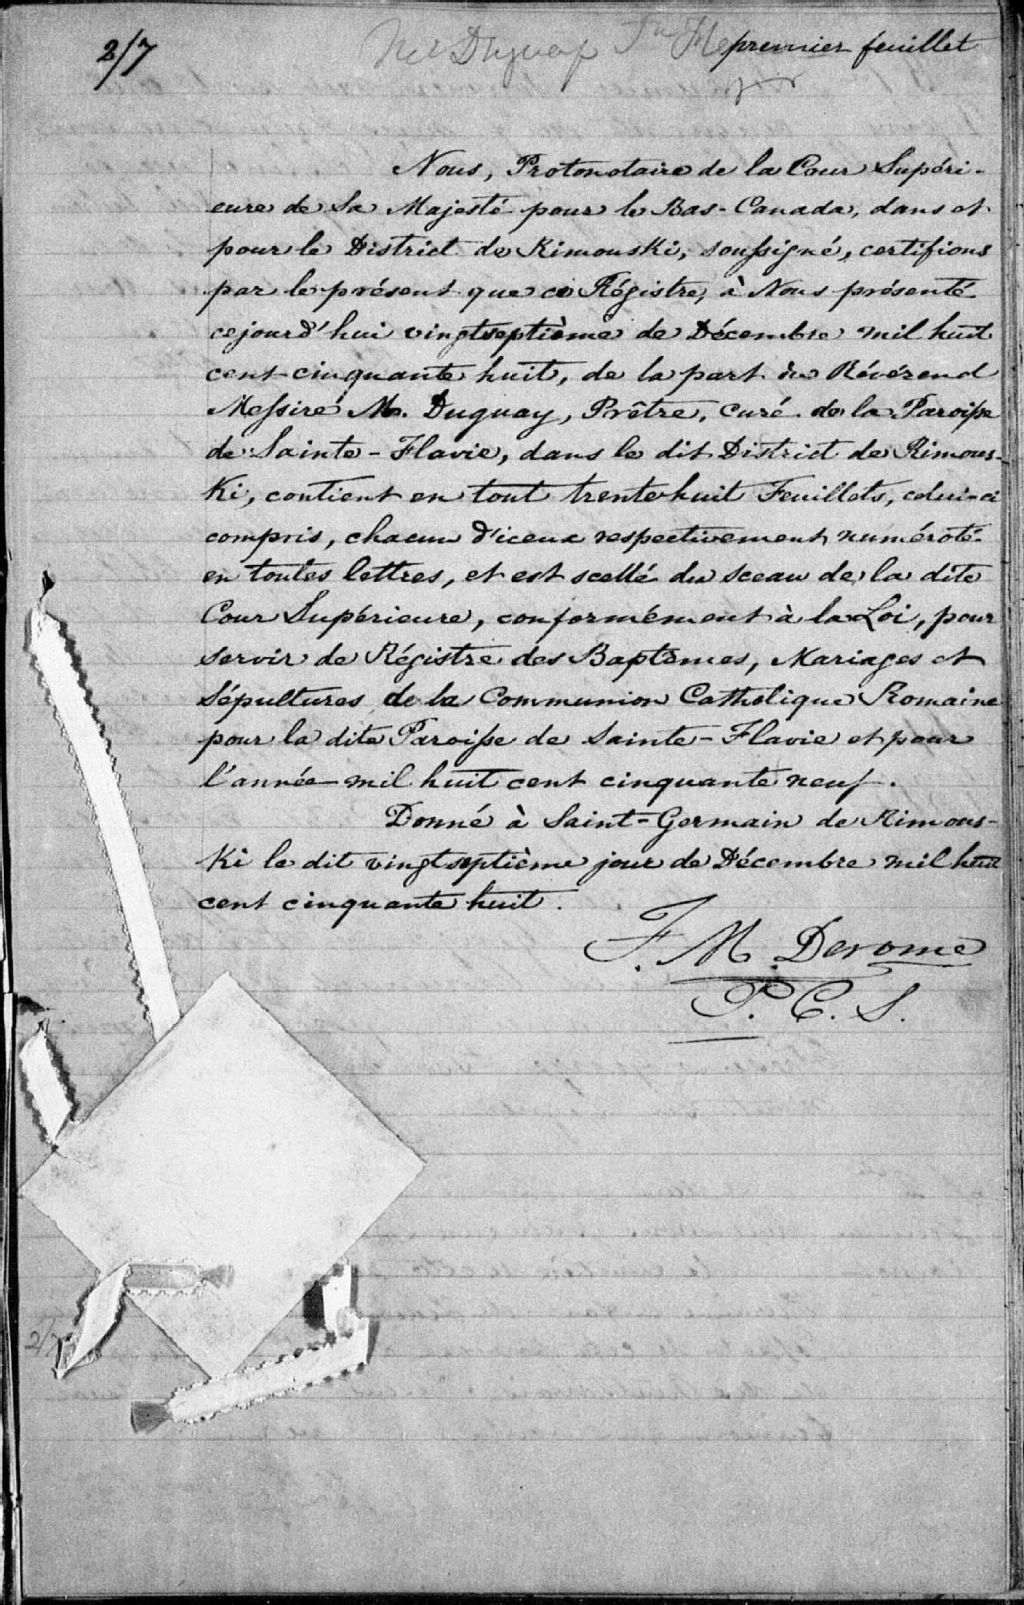 2/7
premier feuillet
Nous, Protonotaire de la Cour Supéri-
eure de Sa Majesté pour le Bas-Canada, dans et
pour le District de Rimouski, soussigné, certifions
par le présent que ce Régistre, à Nous présenté
cejourd'hui vingtseptième de Décembre mil huit
cent cinquante huit, de la part du Révérend
Messire M. Duguay, Prêtre, curé de la Paroisse
de Sainte-Flavie, dans le dit District de Rimous-
Ki, contient en tout trente huit Feuillets, celui-ci
compris, chacun d'iceux respectivement numéroté
en toutes lettres, et est scellé du sceau de la dite
Cour Supérieure, conformément à la Loi, pour
servir de Régistre des Baptêmes, Mariages et
Sépultures de la Communion Catholique Romaine
pour la dite Paroisse de Sainte-Flavie et pour
l'année mil huit cent cinquante neuf.
Donné à Saint-Germain de Rimous-
Ki le dit vingtseptième jour de Décembre mil huit
cent cinquante huit.
F. M. Derome
P. C. S.
2/7